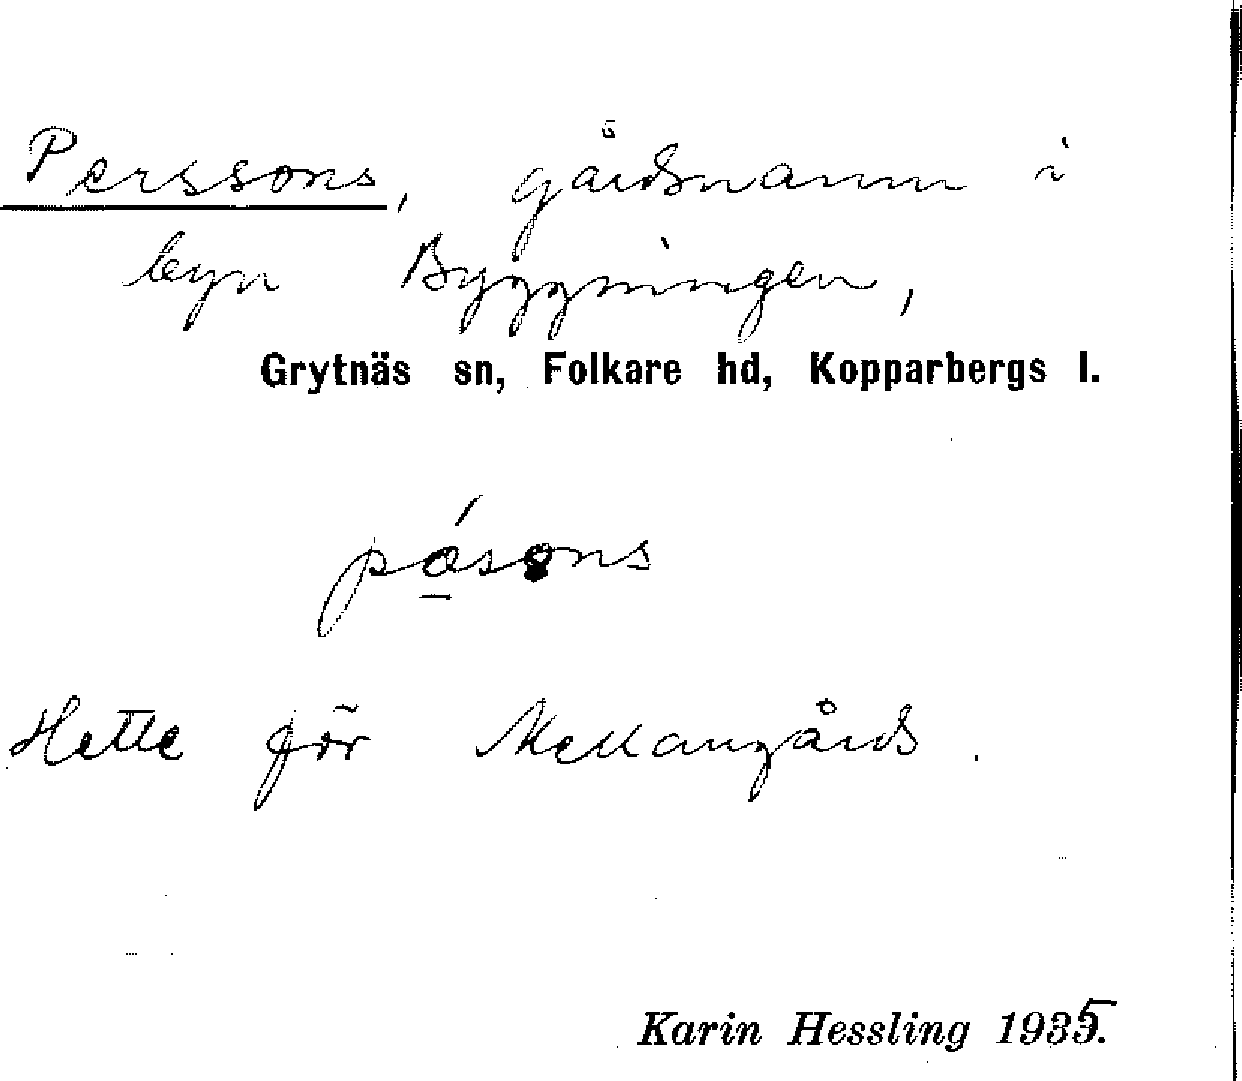 Perssons, gårdsnamn i
byn Byggningen,
Grytnäs sn, Folkare hd, Kopparbergs l.
påsons
Hette för Mellangårds.
Karin Hessling 1935.